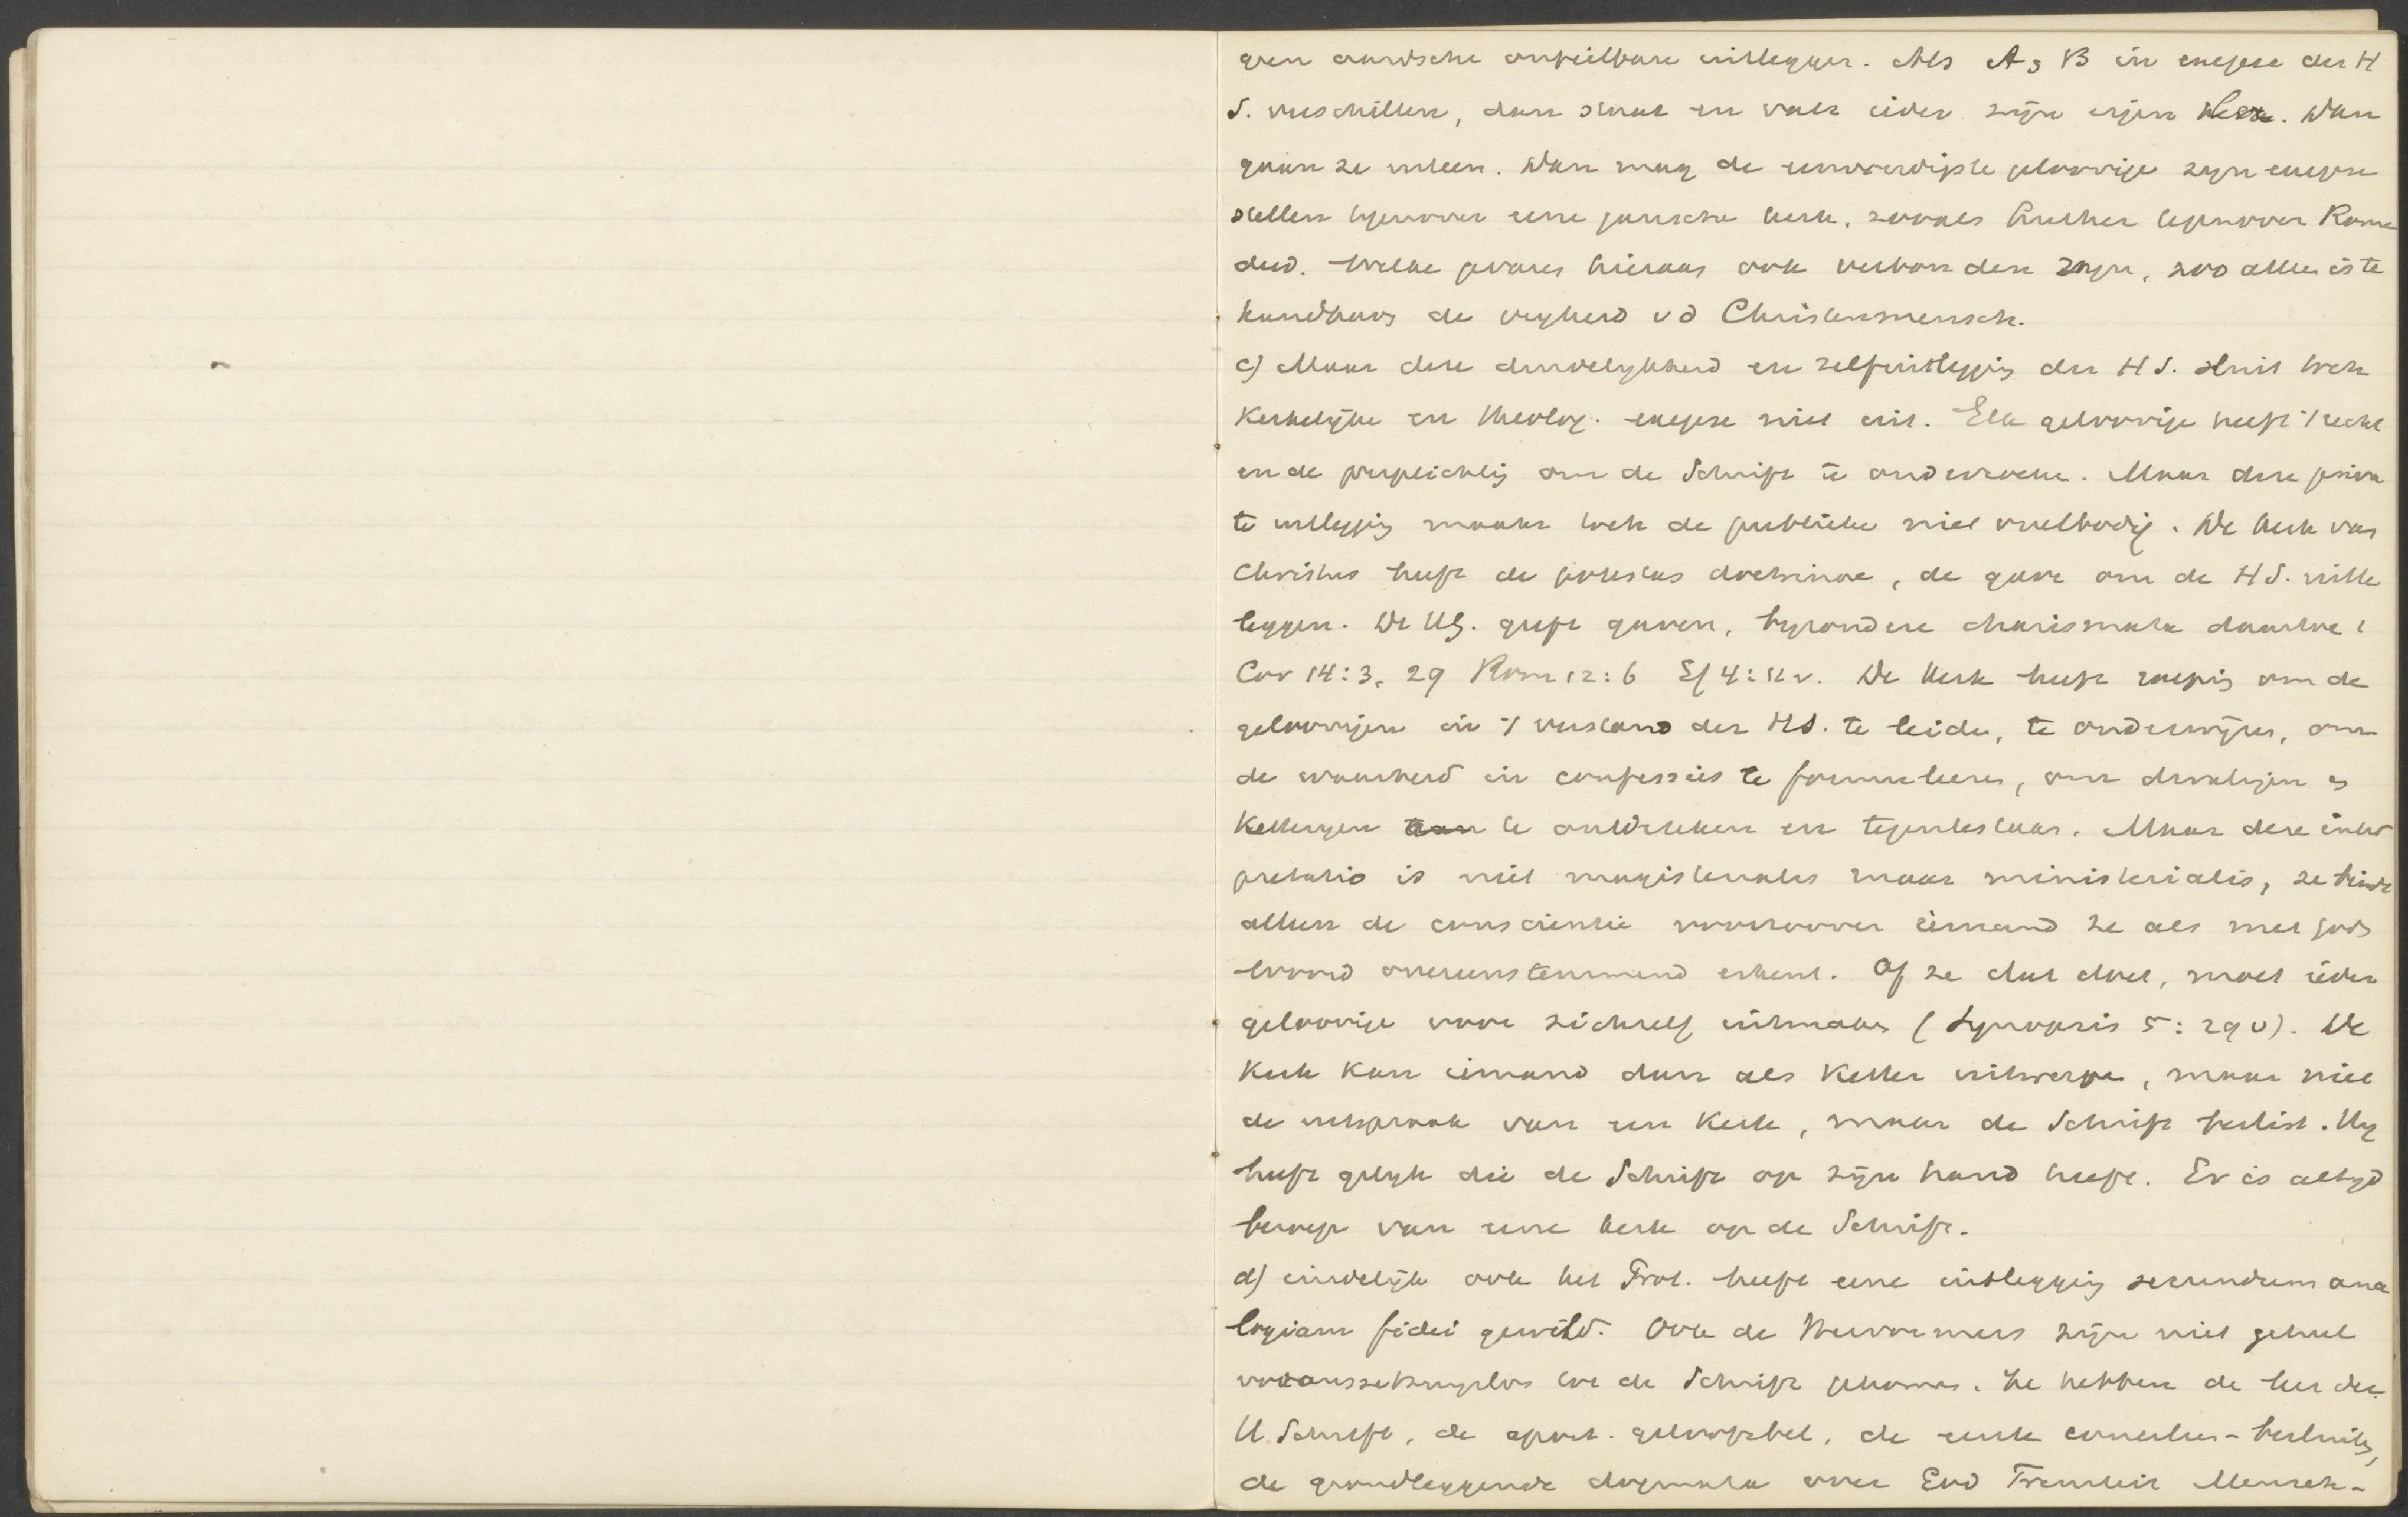 geen aardsche onfeilbare uitlegger. Als A en B in exegese der H
S. verschillen, dan staat en valt ieder zijn eigen Heer. Dan
gaan ze uiteen. Dan mag de eenvoudigste geloovige zijn exegese
stellen tegenover eene gansche kerk, zooals Luther tegenover Rome
deed. Welke gevaren hieraan ook verbonden zijn, zoo alleen is te
handhaven de vrijheid v d Christenmensch.
c) Maar deze duidelijkheid en zelfuitlegging der H S. sluit toch
Kerkelijke en theolog. exegese niet uit. Elk geloovige heeft 't recht
en de verplichting om de Schrift te onderzoeken. Maar deze priva
te uitlegging maakt toch de publieke niet overbodig. De kerk van
Christus heeft de potestas doctrinae, de gave om de H S. uitte
leggen. De HG. geeft gaven, byzondere charismata daartoe 1
Cor 14:3, 29 Rom 12:6 Ef 4:11 v. De Kerk heeft roeping om de
geloovigen in 't verstand der HS. te leiden, te onderwijzen, om
de waarheid in confessies te formuleeren, om dwalingen en
Ketteryen te ontdekken en tegentestaan. Maar deze inter
pretatio is niet magistralis maar ministerialis, ze bindt
alleen de conscientie voorzoover iemand ze als met Gods
woord overeenstemmend erkent. Of ze dat doet, moet ieder
geloovige voor zichzelf uitmaken (Synopsis 5:29 v). De
Kerk kan iemand dan als Ketter uitwerpen, maar niet
de uitspraak van een Kerk, maar de Schrift beslist. Hy
heeft gelyk die de Schrift op zijn hand heeft. Er is altyd
beroep van eene kerk op de Schrift.
d) eindelijk ook het Prot. heeft eene uitlegging secundum ana
logiam fidei gewild. Ook de Hervormers zijn niet geheel
voraussetzungslos tot de Schrift gekomen. Ze hebben de leer der
H Schrift, de apost. geloofsbel, de eerste concilies-besluiten,
de grondleggende dogmata over God Triniteit Mensch-